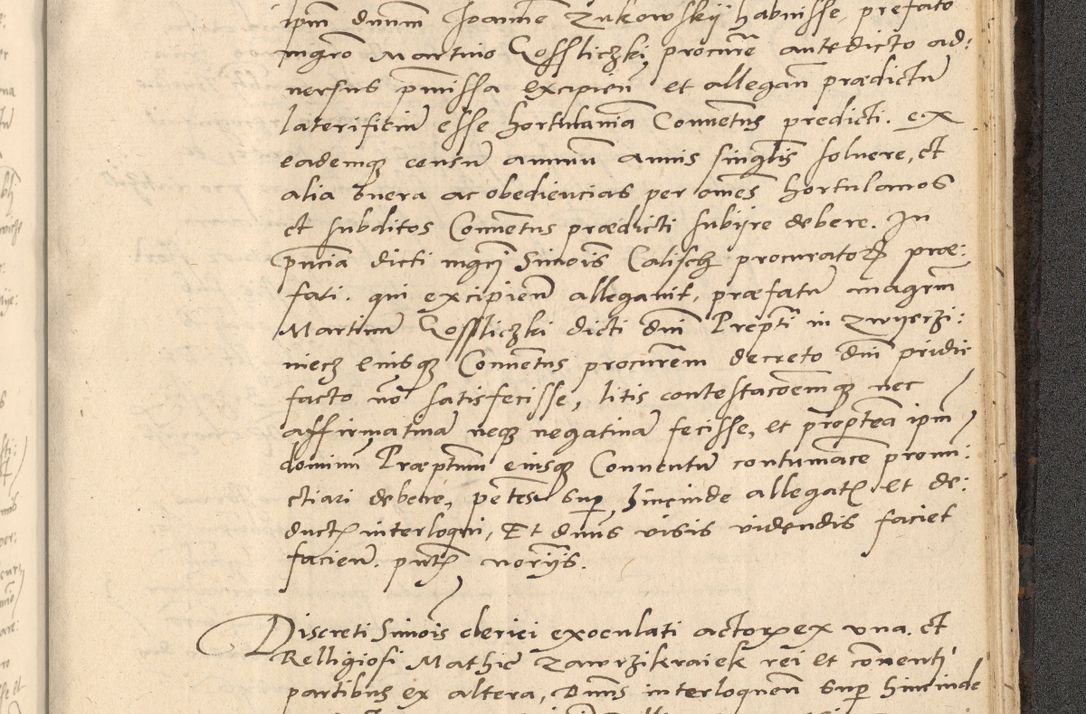 ipm dnum Joanne Zukowskÿ habuisse, prefato
mgro Martino Gosslichki procure antedicto ad:
uersus pmissa excipien et allegan prædictu
laterificiu esse hortulania Conuetus predicti. ex
eademq censu annuu annis singlis soluere, et
alia onera ac obediencias per omes hortulanos
et subditos Conuentus prædicti subijre debere. In
pncia dicti mgri Simois Calisch procurator præ:
fati. qui excipien allegauit, præfatu magrm
Martinu Gosslichki dicti dni Prepti in Zwyerzi:
niecz eiusq Conuetus procurem decreto dni pridie
facto no satisfecisse, litis contestacoemq nec
affirmatiua neq negatiua fecisse, et propterea ipm
dominu Præptum eiusq Conuentu contumace pronu:
ctiari debere, petes sup hincinde allegat et de:
duct interloqui, Et dnus visis videndis faciet
facien. pnt norijs.
Discreti Simois clerici exoculati actor ex vna. et
Relligiosi Mathie Zawrzikraiek rei et conenti
partibus ex altera, Dnus interloquen sup hincinde